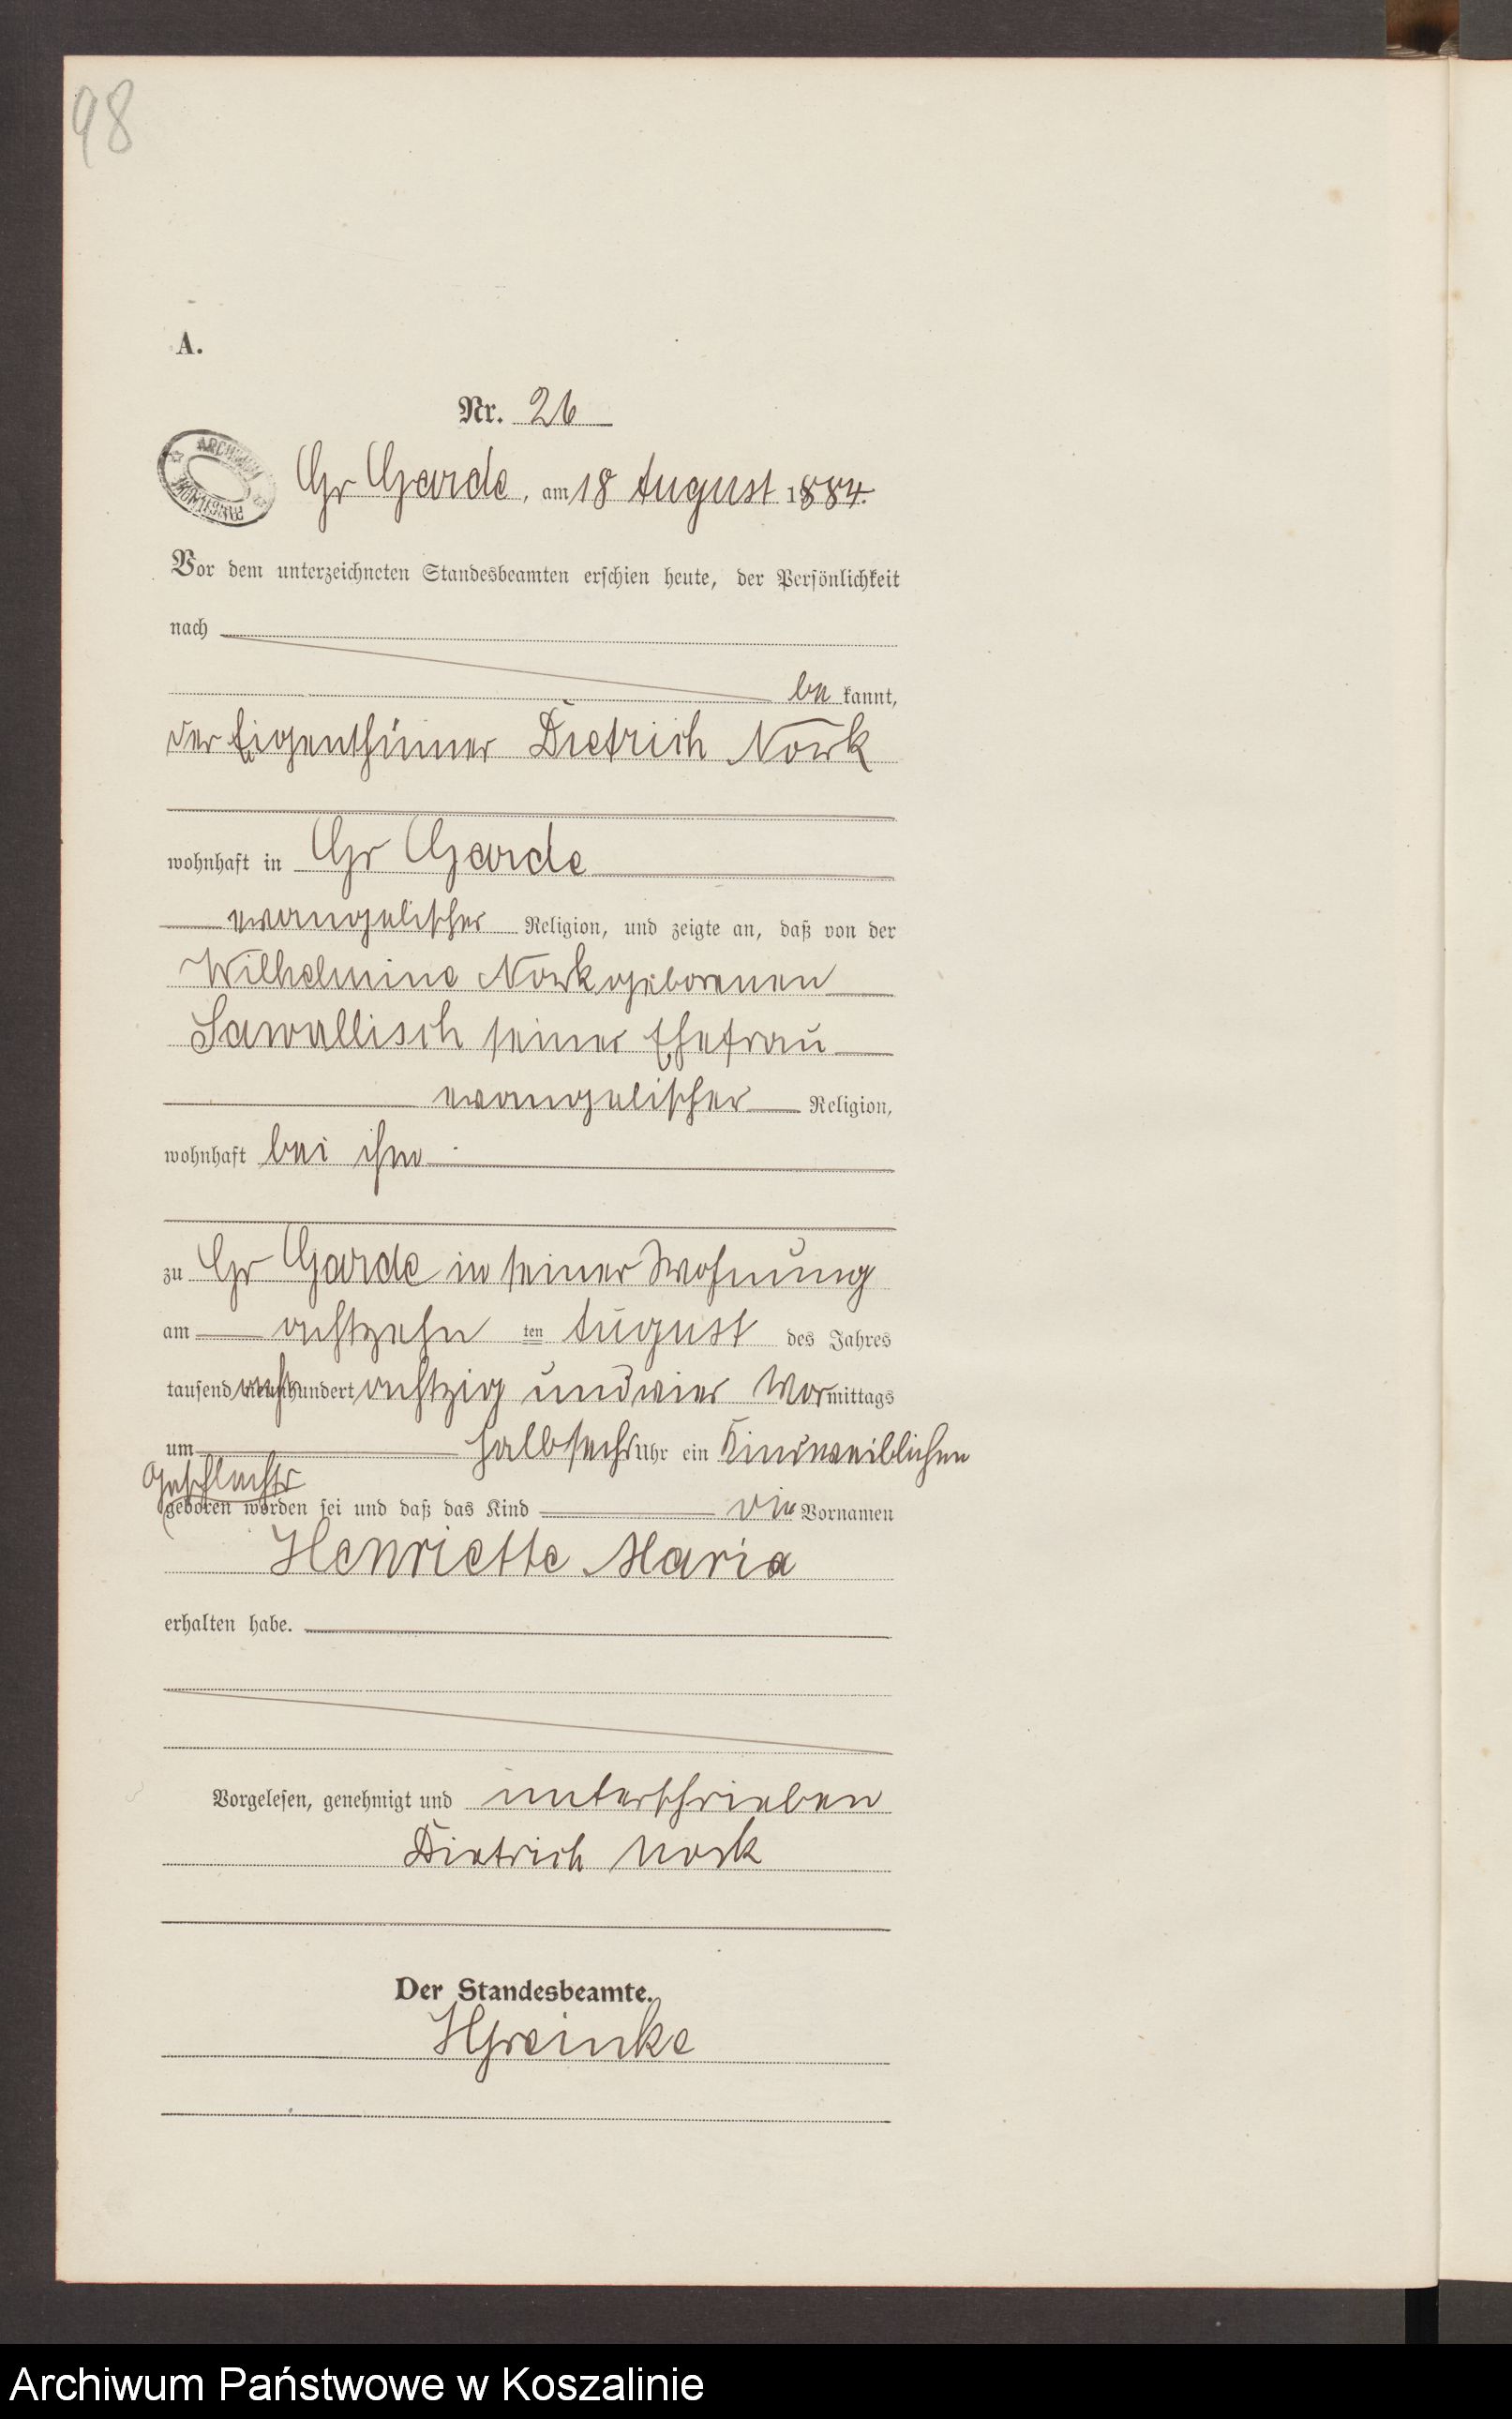 98
A.
Nr. 26
Gr Garde, am 18 August 1884.
Vor dem unterzeichneten Standesbeamten erschien heute, der Persönlichkeit
nach
be kannt,
der Eigenthümer Dietrich Nowk
wohnhaft in Gr Garde
evangelischer Religion, und zeigte an, daß von der
Wilhelmine Nowk geborenen
Sawallisch seiner Ehefrau
evangelischer Religion,
wohnhaft bei ihm
zu Gr Garde in seiner Wohnung
am achtzehn ten August des Jahres
tausend acht hundert achtzig und vier Vormittags
um halb sechs Uhr ein Kind weiblichen
Geschlechts
geboren worden sei und daß das Kind die Vornamen
Henriette Maria
erhalten habe.
Vorgelesen, genehmigt und unterschrieben
Dietrich
Der Standesbeamte.
HGreinke
Archiwum Państwowe w Koszalinie